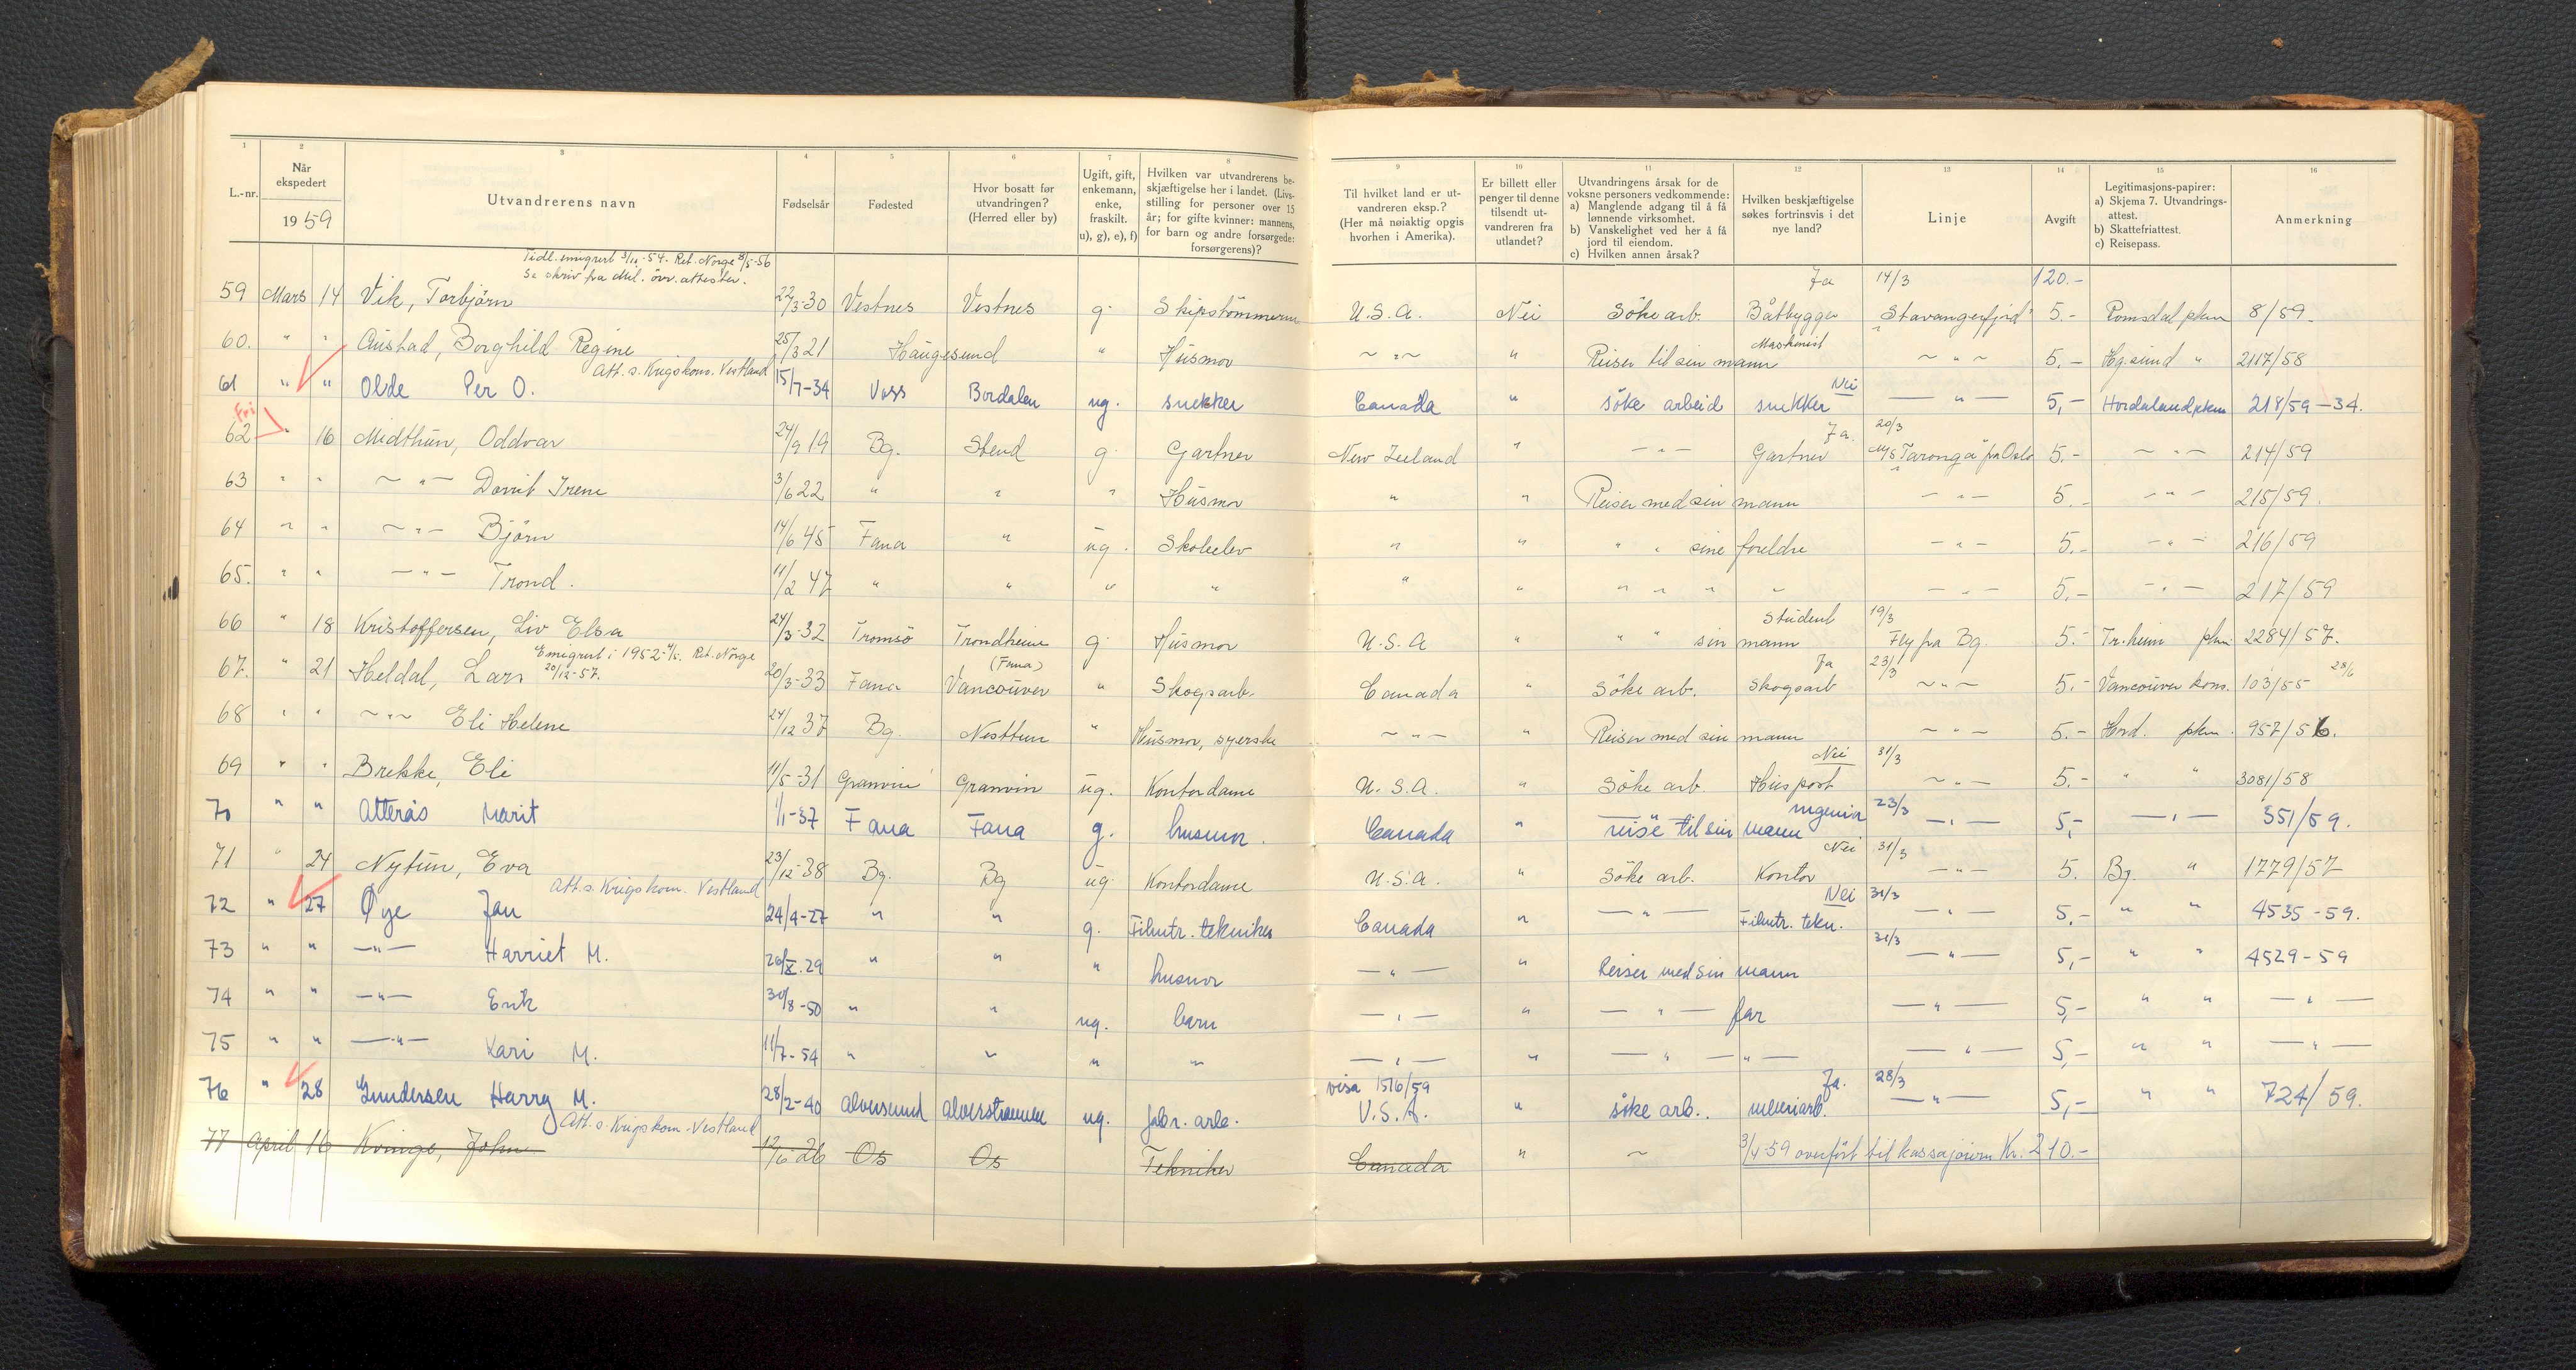 1 2 3 4 5 6 7 8 9 10 11 12 13 14 15 16
L.-nr. Når ekspedert 1959 Utvandrerens navn Fødselsår Fødested Hvor bosatt før utvandringen? (Herred eller by) Ugift, gift, enkemann, enke, fraskilt. u), g), e), f) Hvilken var utvandrerens beskjæftigelse her i landet. (Livsstilling for personer over 15 år; for gifte kvinner: mannens, for barn og andre forsørgede: forsørgerens)? Til hvilket land er utvandreren eksp.? (Her må nøiaktig opgis hvorhen i Amerika). Er billett eller penger til denne tilsendt utvandreren fra utlandet? Utvandringens årsak for de voksne personers vedkommende: a) Manglende adgang til å få lønnende virksomhet. b) Vanskelighet ved her å få jord til eiendom. c) Hvilken annen årsak? Hvilken beskjæftigelse søkes fortrinsvis i det nye land? Linje Avgift Legitimasjons-papirer: a) Skjema 7. Utvandringsattest. b) Skattefriattest. c) Reisepass. Anmerkning
Tidl. emigrert 3/11-54. Ret. Norge 8/5-56
Se skriv fra Mil. övr. attester.
Ja 14/3 120.-
59 Mars 14 Vik, Torbjörn 22/3-30 Vestnes Vestnes g. Skipstömmerm U.S.A. Nei Söke arb. Båtbygger "Stavangerfjord" 5.- Romsdal pkm 8/59.
Maskinist
60. " " Austad, Borghild Regine 25/3 21 Haugesund " Husmor ~ " ~ " Reiser til sin mann ~ " ~ 5.- Hg.sund " 2117/58
Att. s. Krigskom. Vestland
Nei
61 " " Olde Per O. 15/7-34 Voss Bordalen ug. snekker Canada " söke arbeid snekker — " — 5,- Hordaland pkm 218/59-34.
Fri
Ja. 20/3
62 " 16 Midthun, Oddvar 24/9 19 Bg. Stend g. Gartner New Zeeland " - " - Gartner M/S "Taronga" fra Oslo 5.- ~ " ~ 214/59
63 " " ~ " ~ Dorrit Irene 3/6 22 " " " Husmor " " Reiser med sin mann - " - 5.- - " - 215/59.
64 " " ~ " ~ Björn 14/6 45 Fana " ug. Skoleelev " " " " sine foreldre - " - 5.- - " - 216/59
65. " " - " - Trond. 11/2 47 " " " " " " " " " " - " - 5.- - " - 217/59
Student 19/3
66 " 18 Kristoffersen, Liv Elsa 24/3-32 Tromsö Trondheim g. Husmor U.S.A " " " sin mann Fly fra Bg. 5.- Tr.heim pkm 2284/57.
Emigrert i 1952-4/5. Ret. Norge 20/12-57.
(Fana) Ja 23/3 28/6
67. " 21 Heldal, Lars 20/3-33 Fana Vancouver " Skogsarb. Canada " Söke arb. Skogsarb ~ " ~ 5.- Vancouver kons. 103/55
68 " " ~ " ~ Eli Helene 24/12 37 Bg. Nesttun " Husmor, syerske ~ " ~ " Reiser med sin mann ~ " ~ 5.- Hord. pkm. 957/56.
Nei 31/3
69 " " Brekke, Eli 11/5-31 Granvin Granvin ug. Kontordame U.S.A. " Söke arb. Huspost ~ " ~ 5.- " " 3081/58
ingeniør 23/3
70 " " Atterås Marit 1/1-37 Fana Fana g. husmor. Canada " reise til sin mann — " — 5,- — " — 351/59.
Nei 31/3
71 " 24 Nytun, Eva 23/12-38 Bg. Bg ug. Kontordame U.S.A. " Söke arb. Kontor — " — 5. Bg. " 1779/57
Att. s. Krigskom. Vestland
Nei 31/3
72 " 27 Øye Jan 24/4-27 " " g. Filmtr. tekniker Canada " — " — Filmtr. tekn. — " — 5,- " " 4535-59.
31/3
73 " " — " — Harriet M. 26/X.29 " " " husmor — " — " Reiser med sin mann — " — 5,- " " 4529-59
74 " " — " — Erik 30/8-50 " " ug. barn — " — " — " — far — " — 5,- " " — " —
75 " " — " — Kari M. 11/7-54 " " " " — " — " — " — " — — " — 5,- " " — " —
visa 1516/59 Ja. 28/3
76 " 28 Gundersen Harry M. 28/2-40 Alversund Alverstraumen ug. fabr. arb. U.S.A. " söke arb. meieriarb. — " — 5,- " " 724/59.
Att. s. Krigskom. Vestland
77 April 16 Kvinge, John 12/6-26 Os Os Tekniker Canada " ~ 3/4-59 overfört til kassajourn Kr. 210.-